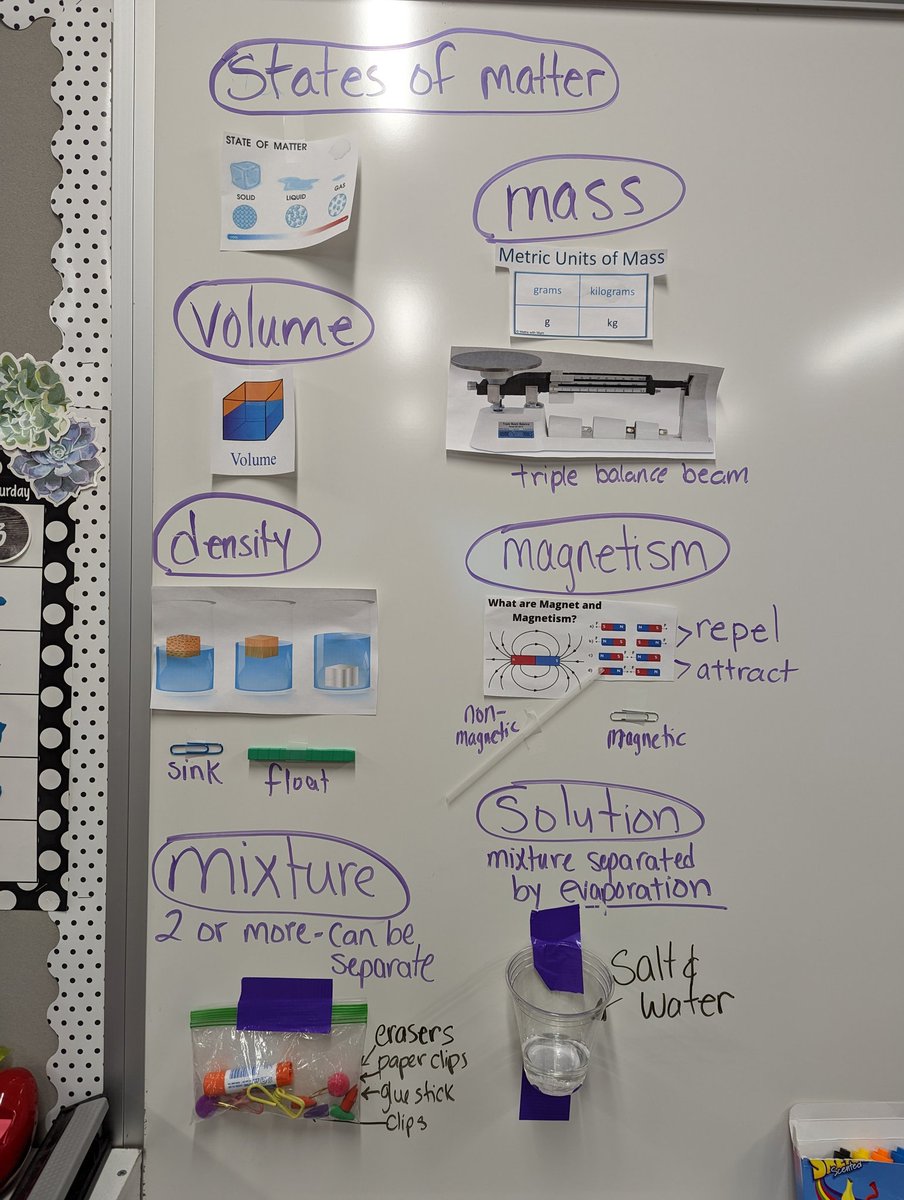 States of matter
STATE OF MATTER
SOLID
LIQUID
GAS
mass
Metric Units of Mass
grams kilograms
g kg
volume
Volume
triple balance beam
density
magnetism
What are Magnet and
Magnetism?
repel
attract
non-
magnetic
magnetic
sink
float
mixture
2 or more-can be
separate
erasers
paper clips
glue stick
clips
Solution
mixture separated
by evaporation
Salt &
Water
urday
3
Scented